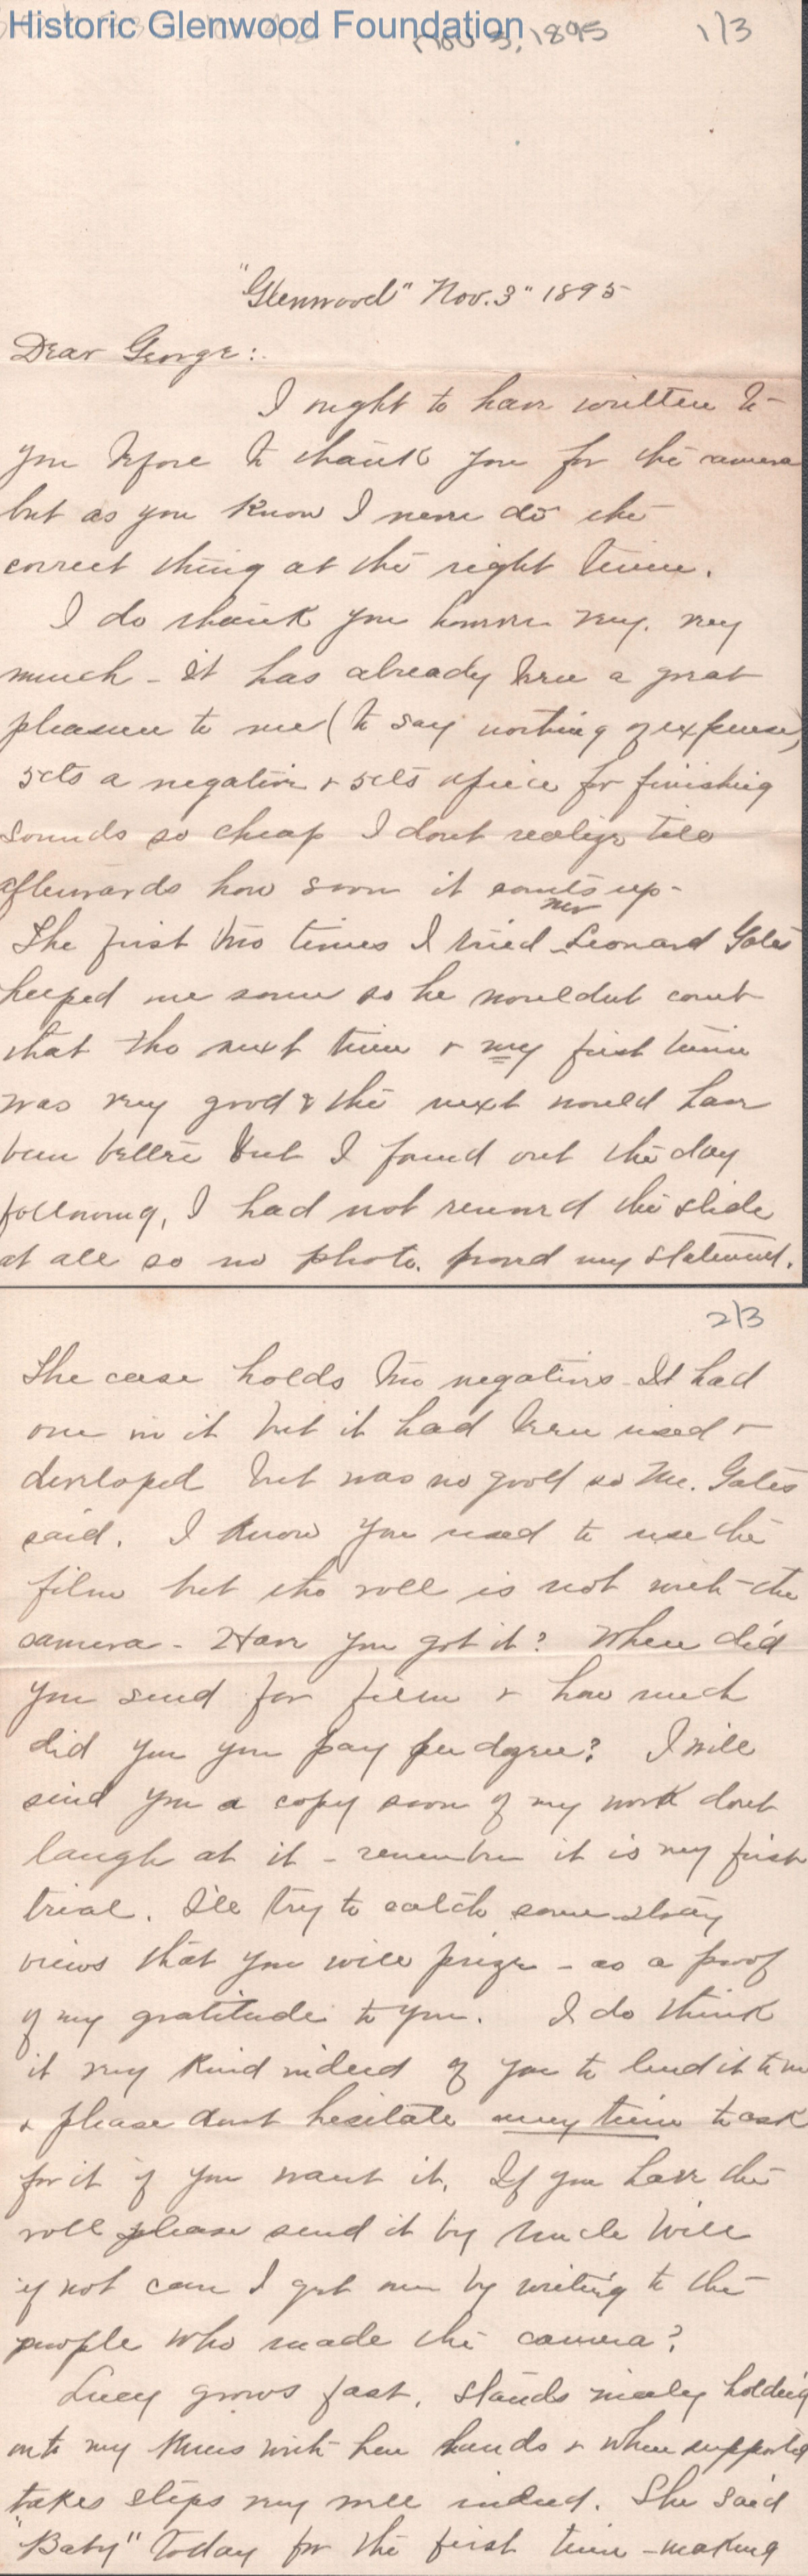 Historic Glenwood Foundation
Nov 3, 1895 1/3
"Glenwood" Nov. 3" 1895
Dear George:
I ought to have written to
you before to thank you for the camera
but as you know I never do the
correct thing at the right time.
I do thank you however very, very
much - it has already been a great
pleasure to me (to say nothing of expense)
5cts a negative & 5cts apiece for finishing
sounds so cheap I dont realize till
afterwards how soon it counts up -
The first two times I tried Mr Leonard Gates
helped me some so he wouldnt count
that tho next time & my first time
was very good & the next would have
been better but I found out the day
following, I had not removed the slide
at all so no photo. proved my statement.
2/3
The case holds two negatives - It had
one in it but it had been used &
developed but was no good so Mr. Gates
said. I know you used to use the
film but the roll is not with the
camera - Have you got it? Where did
you send for film & how much
did you you pay per dozen? I will
send you a copy soon of my work dont
laugh at it - remember it is my first
trial. I'll try to catch some
views that you will prize - as a proof
of my gratitude to you. I do think
it very kind indeed of you to lend it to me
& please dont hesitate any time to ask
for it if you want it. If you have the
roll please send it by Uncle Will
if not can I get one by writing to the
people who made the camera?
Lucy grows fast, stands nicely holding
onto my knees with her hands & when supported
takes steps very well indeed. She said
"Baby" today for the first time - making